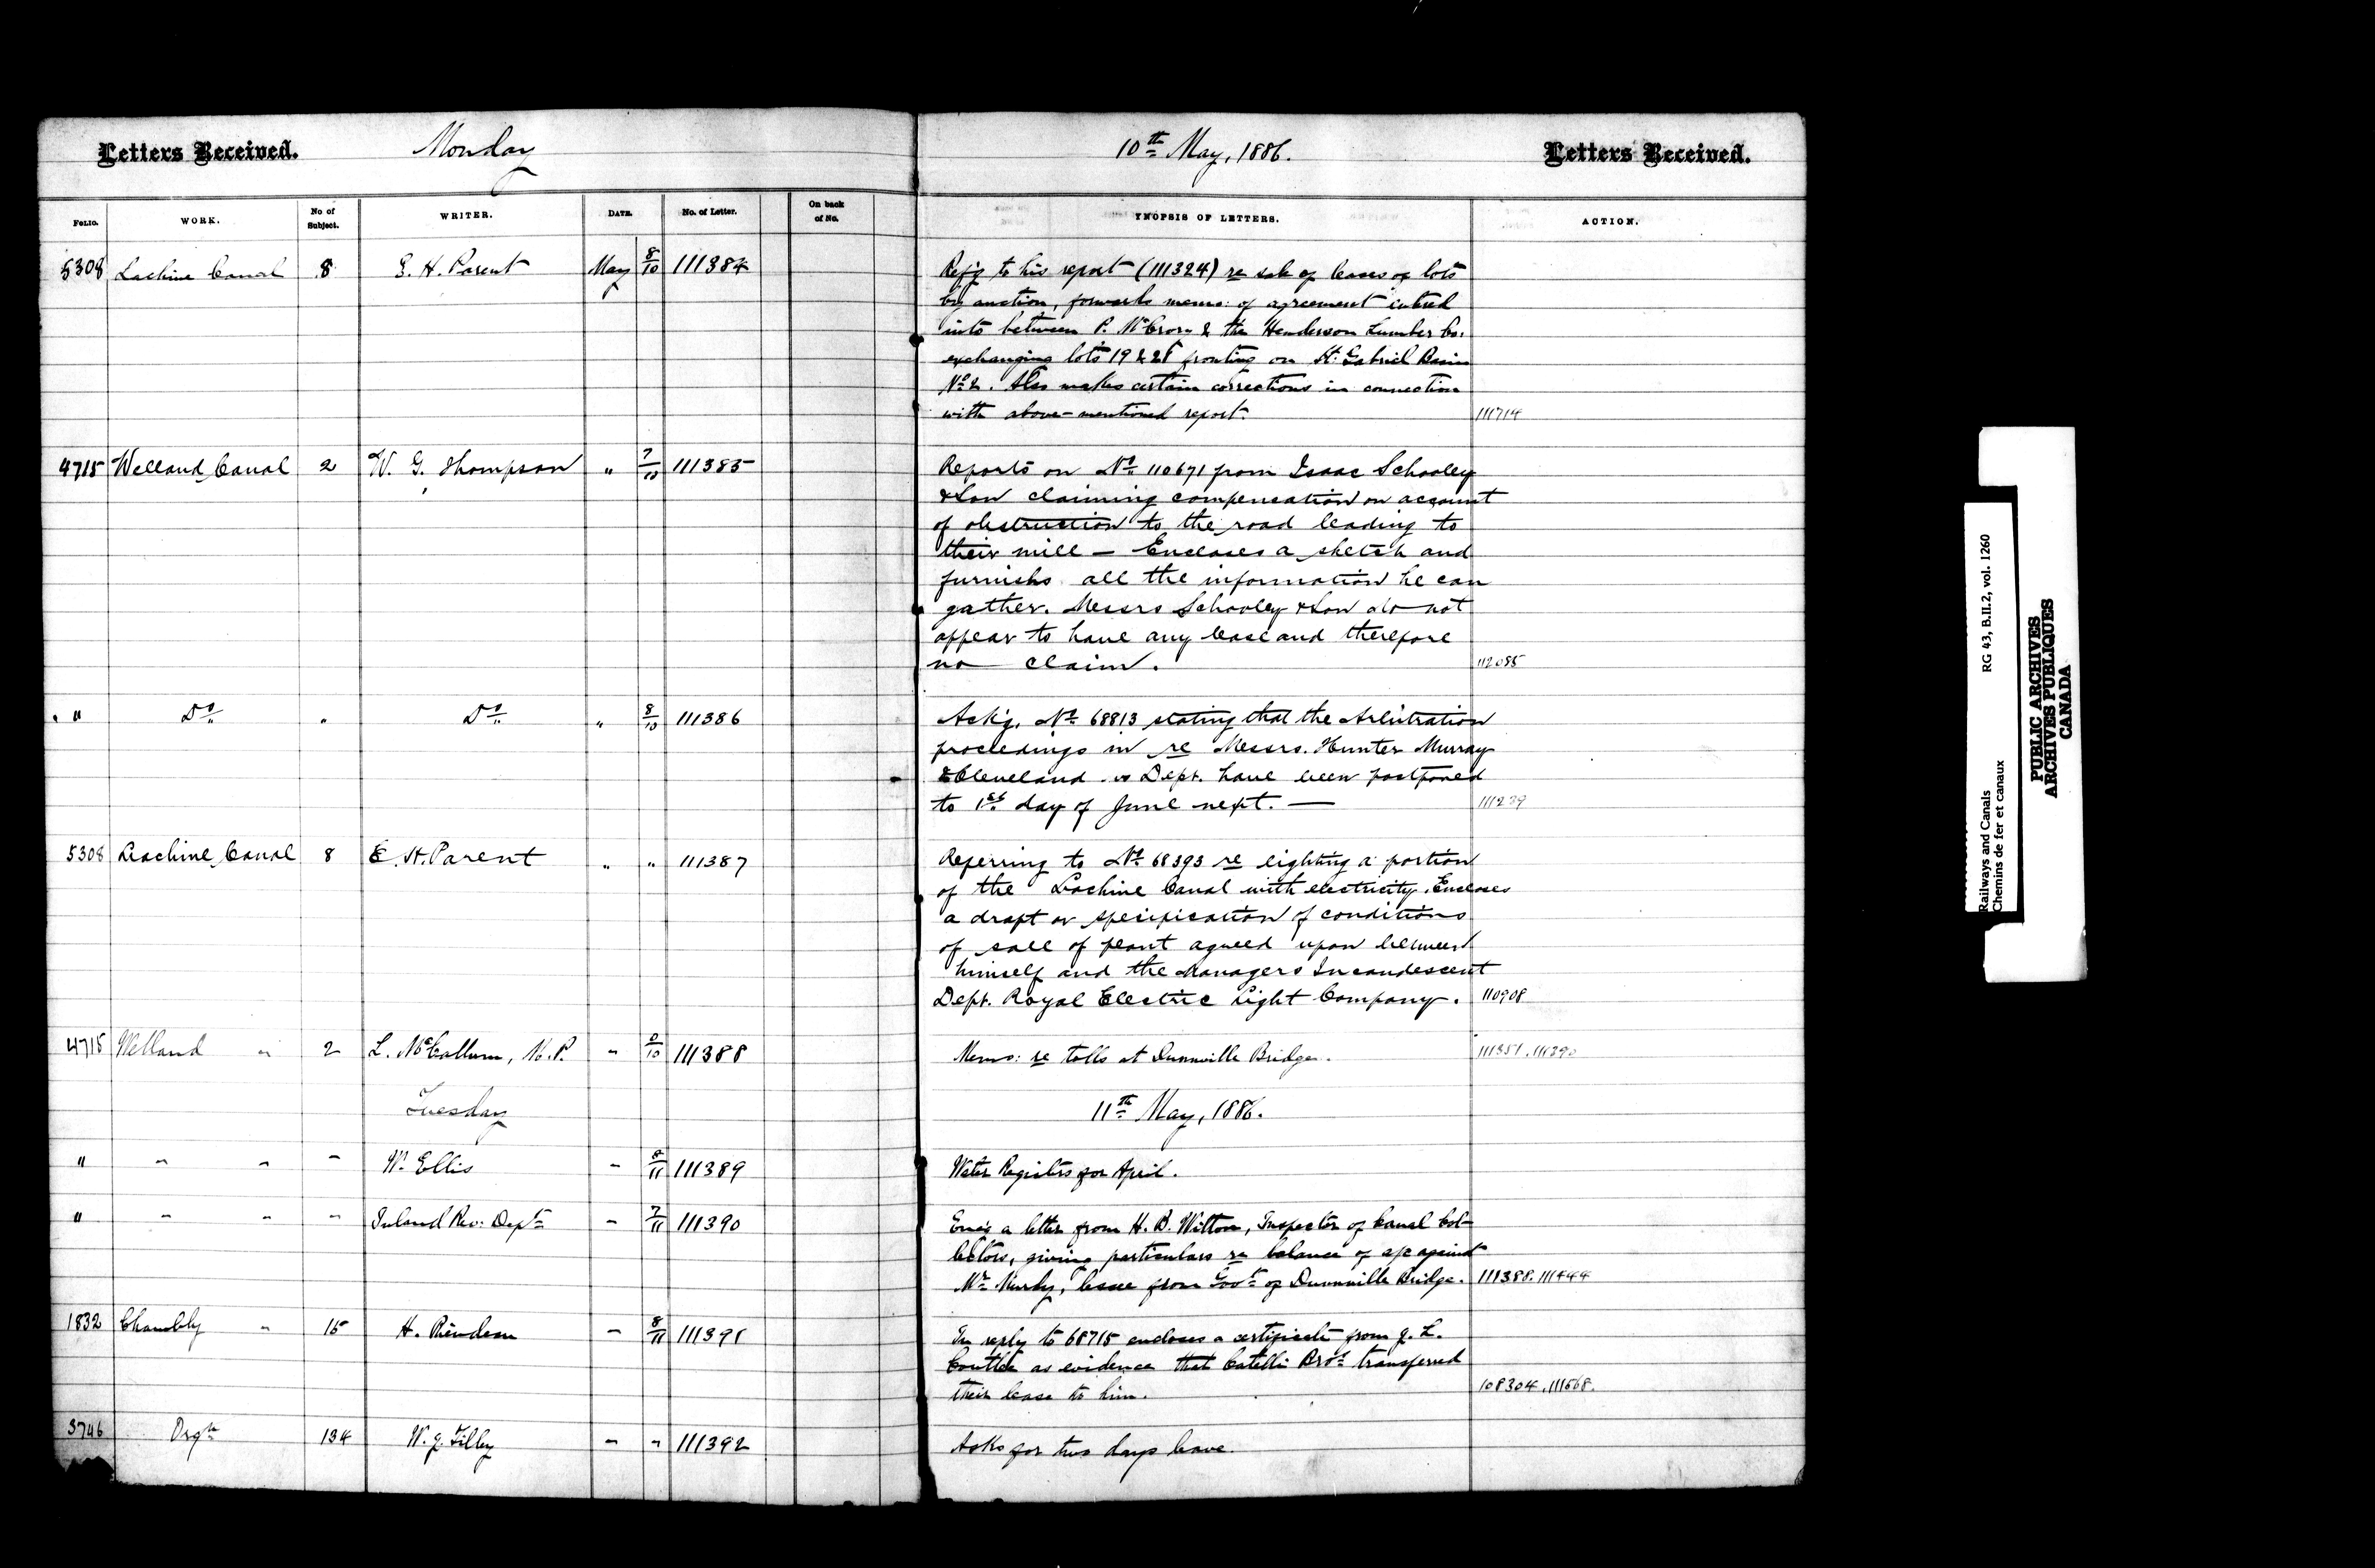 Letters Received. Monday 10th May, 1886. Letters Received.
FOLIO. WORK. No of Subject. WRITER. DATE. No. of Letter. On back of No. SYNOPSIS OF LETTERS. ACTION.
5308 Lachine Canal 8 E. H. Parent May 8/10 111384 Ref'g to his report (111324) re sale of leases of lots
by auction, forwards memo: of agreement entered
into between P. McCrory & the Henderson Lumber Co:
exchanging lots 19 & 21 fronting on St. Gabriel Basin
No 2. Also makes certain corrections in connection
with above-mentioned report. 111714
4715 Welland Canal 2 W. G. Thompson " 7/10 111385 Reports on No 110671 from Isaac Schooley
& Son claiming compensation on account
of obstruction to the road leading to
their mill — Encloses a sketch and
furnishs all the information he can
gather. Messrs Schooley & Son do not
appear to have any lease and therefore
no claim. 112055
" Do " Do " 8/10 111386 Ack'g. No 68813 stating that the Arbitration
proceedings in re Messrs. Hunter Murray
& Cleveland vs Dept. have been postponed
to 1st day of June next. — 111239
5308 Lachine Canal 8 E. H. Parent " " 111387 Referring to No 68393 re lighting a portion
of the Lachine Canal with electricity. Encloses
a draft or specification of conditions
of sale of plant agreed upon between
himself and the Managers Incandescent
Dept. Royal Electric Light Company. 110908
4715 Welland " 2 L. McCallum, M.P. " 111388 Memo: re tolls at Dunnville Bridge. 111351. 111390
Tuesday 11th May, 1886.
" " " " W. Ellis " 8/11 111389 Water Registers for April.
" " " " Inland Rev: Dept " 7/11 111390 Enc'g a letter from H. B. Witton, Inspector of Canal Col-
lectors, giving particulars re balance of a/c against
Mr, lessee from Govt of Dunnville Bridge. 111388. 111444
1832 Chambly " 15 H. Riendeau " 8/11 111391 In reply to 68715 encloses a certificate from J. L.
as evidence that Catelli Bros transferred
their lease to him. 108304. 111568.
3746 Orgn 134 W. J. Tilley " " 111392 Asks for two days leave.
Railways and Canals RG 43, B.II.2, vol. 1260
Chemins de fer et canaux
PUBLIC ARCHIVES
ARCHIVES PUBLIQUES
CANADA